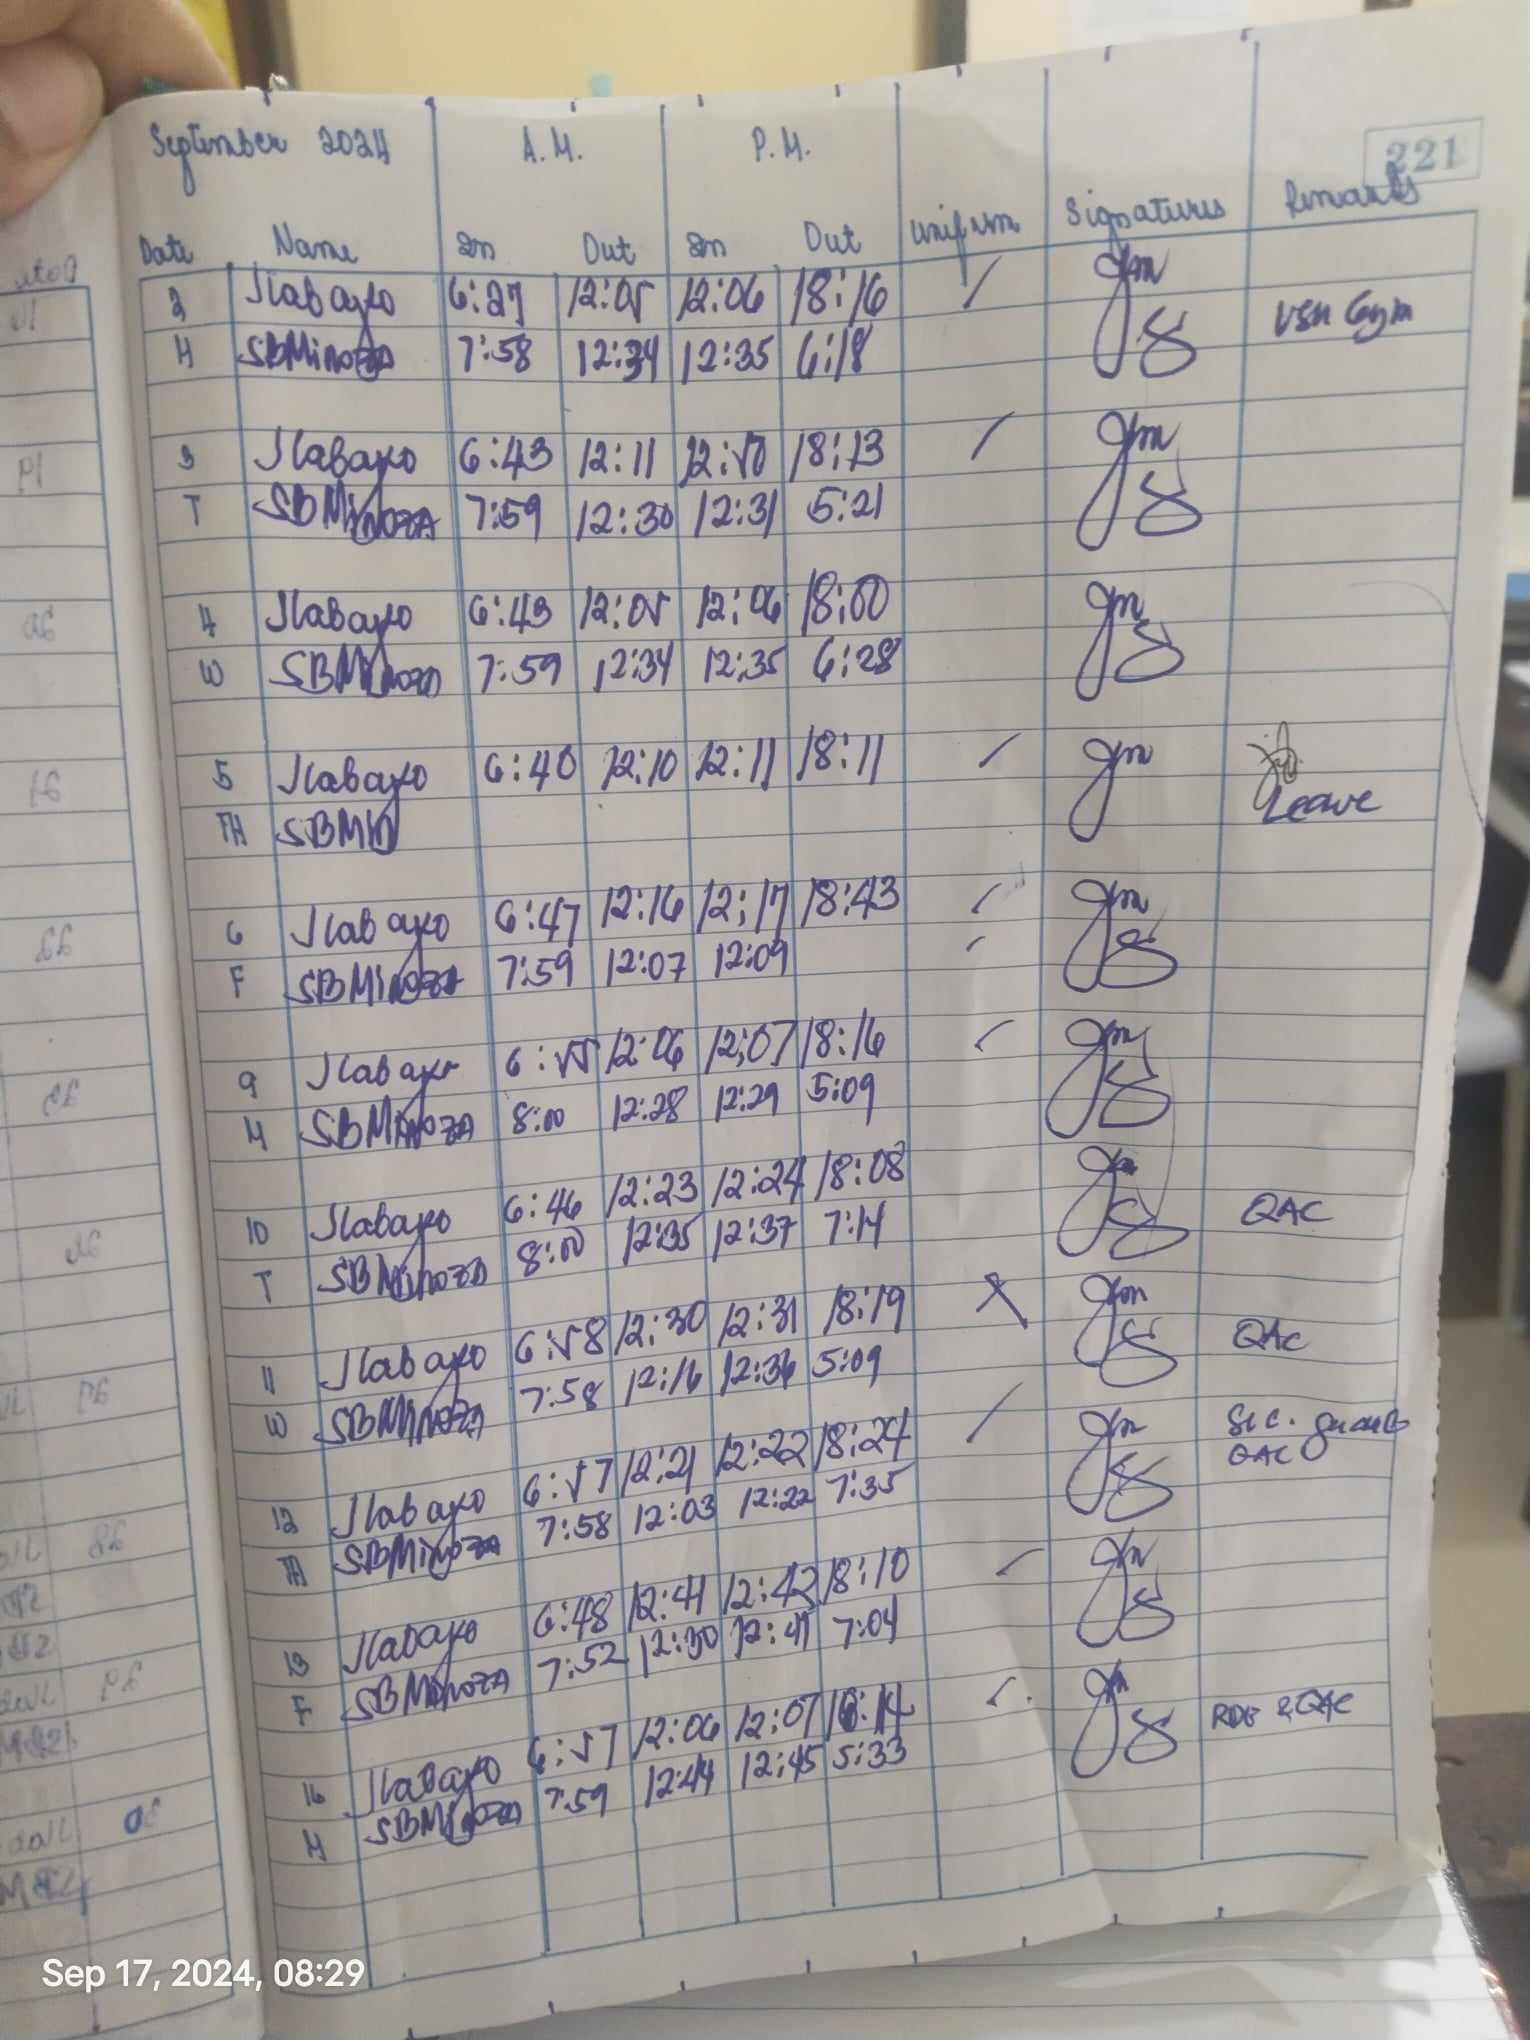 221
September 2024 A.M. P.M.
Date Name In Out In Out Uniform Signatures Remarks
2 Jlabayo 6:27 12:05 12:06 18:16 /
M SBMinoza 7:58 12:34 12:35 6:18 VSU Gym
3 Jlabayo 6:43 12:11 12:50 18:13 /
T SBMinoza 7:59 12:30 12:31 5:21
4 Jlabayo 6:43 12:05 12:06 18:00
W SBMinoza 7:59 12:34 12:35 6:28
5 Jlabayo 6:40 12:10 12:11 18:11 /
TH SBMin Leave
6 Jlabayo 6:47 12:16 12:17 18:43 /
F SBMinoza 7:59 12:07 12:09 /
9 Jlabayo 6:55 12:06 12:07 18:16 /
M SBMinoza 8:00 12:28 12:29 5:09
10 Jlabayo 6:46 12:23 12:24 18:08
T SBMinoza 8:00 12:35 12:37 7:14 QAC
11 Jlabayo 6:58 12:30 12:31 18:19 X
W SBMinoza 7:58 12:16 12:36 5:09 QAC
12 Jlabayo 6:57 12:21 12:22 18:24 /
TH SBMinoza 7:58 12:03 12:22 7:35 QAC
13 Jlabayo 6:48 12:41 12:42 18:10 /
F SBMinoza 7:52 12:30 12:41 7:04
16 Jlabayo 6:57 12:06 12:07 /
M SBMinoza 7:59 12:44 12:45 5:33 RDE & QAC
Sep 17, 2024, 08:29